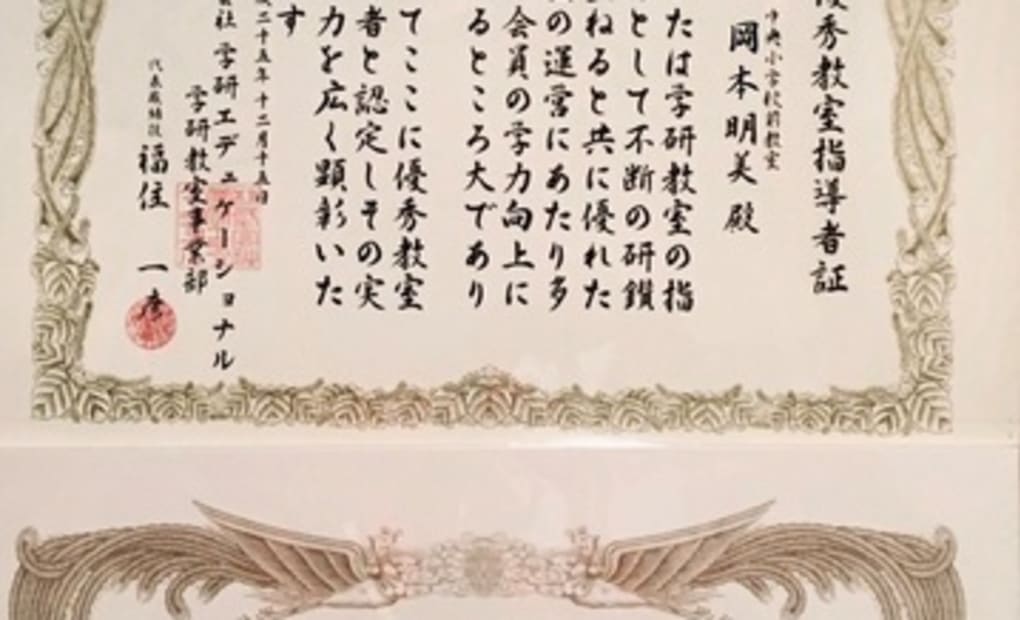 優秀教室指導者証
中央小学校前教室
岡本明美殿
たは学研教室の指
として不断の研鑽
ねると共に優れた
の運営にあたり多
会員の学力向上に
るところ大であり
てここに優秀教室
者と認定しその実
力を広く顕彰いた
す
二十五年十二月十五日
社 学研エデュケーショナル
学研教室事業部
代表取締役 福住 一彦